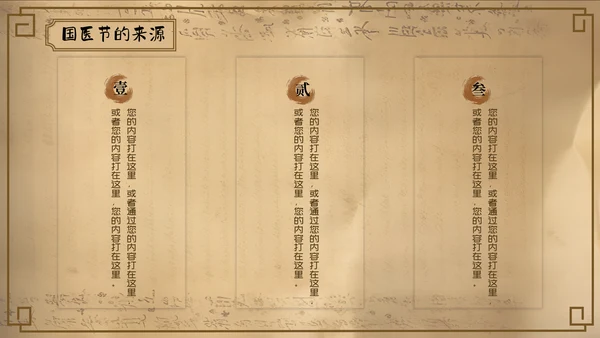 国医节的来源
壹
您的内容打在这里，或者通过您的内容打在这里
或者您的内容打在这里，您的内容打在这里。
贰
您的内容打在这里，或者通过您的内容打在这里
或者您的内容打在这里，您的内容打在这里。
叁
您的内容打在这里，或者通过您的内容打在这里
或者您的内容打在这里，您的内容打在这里。